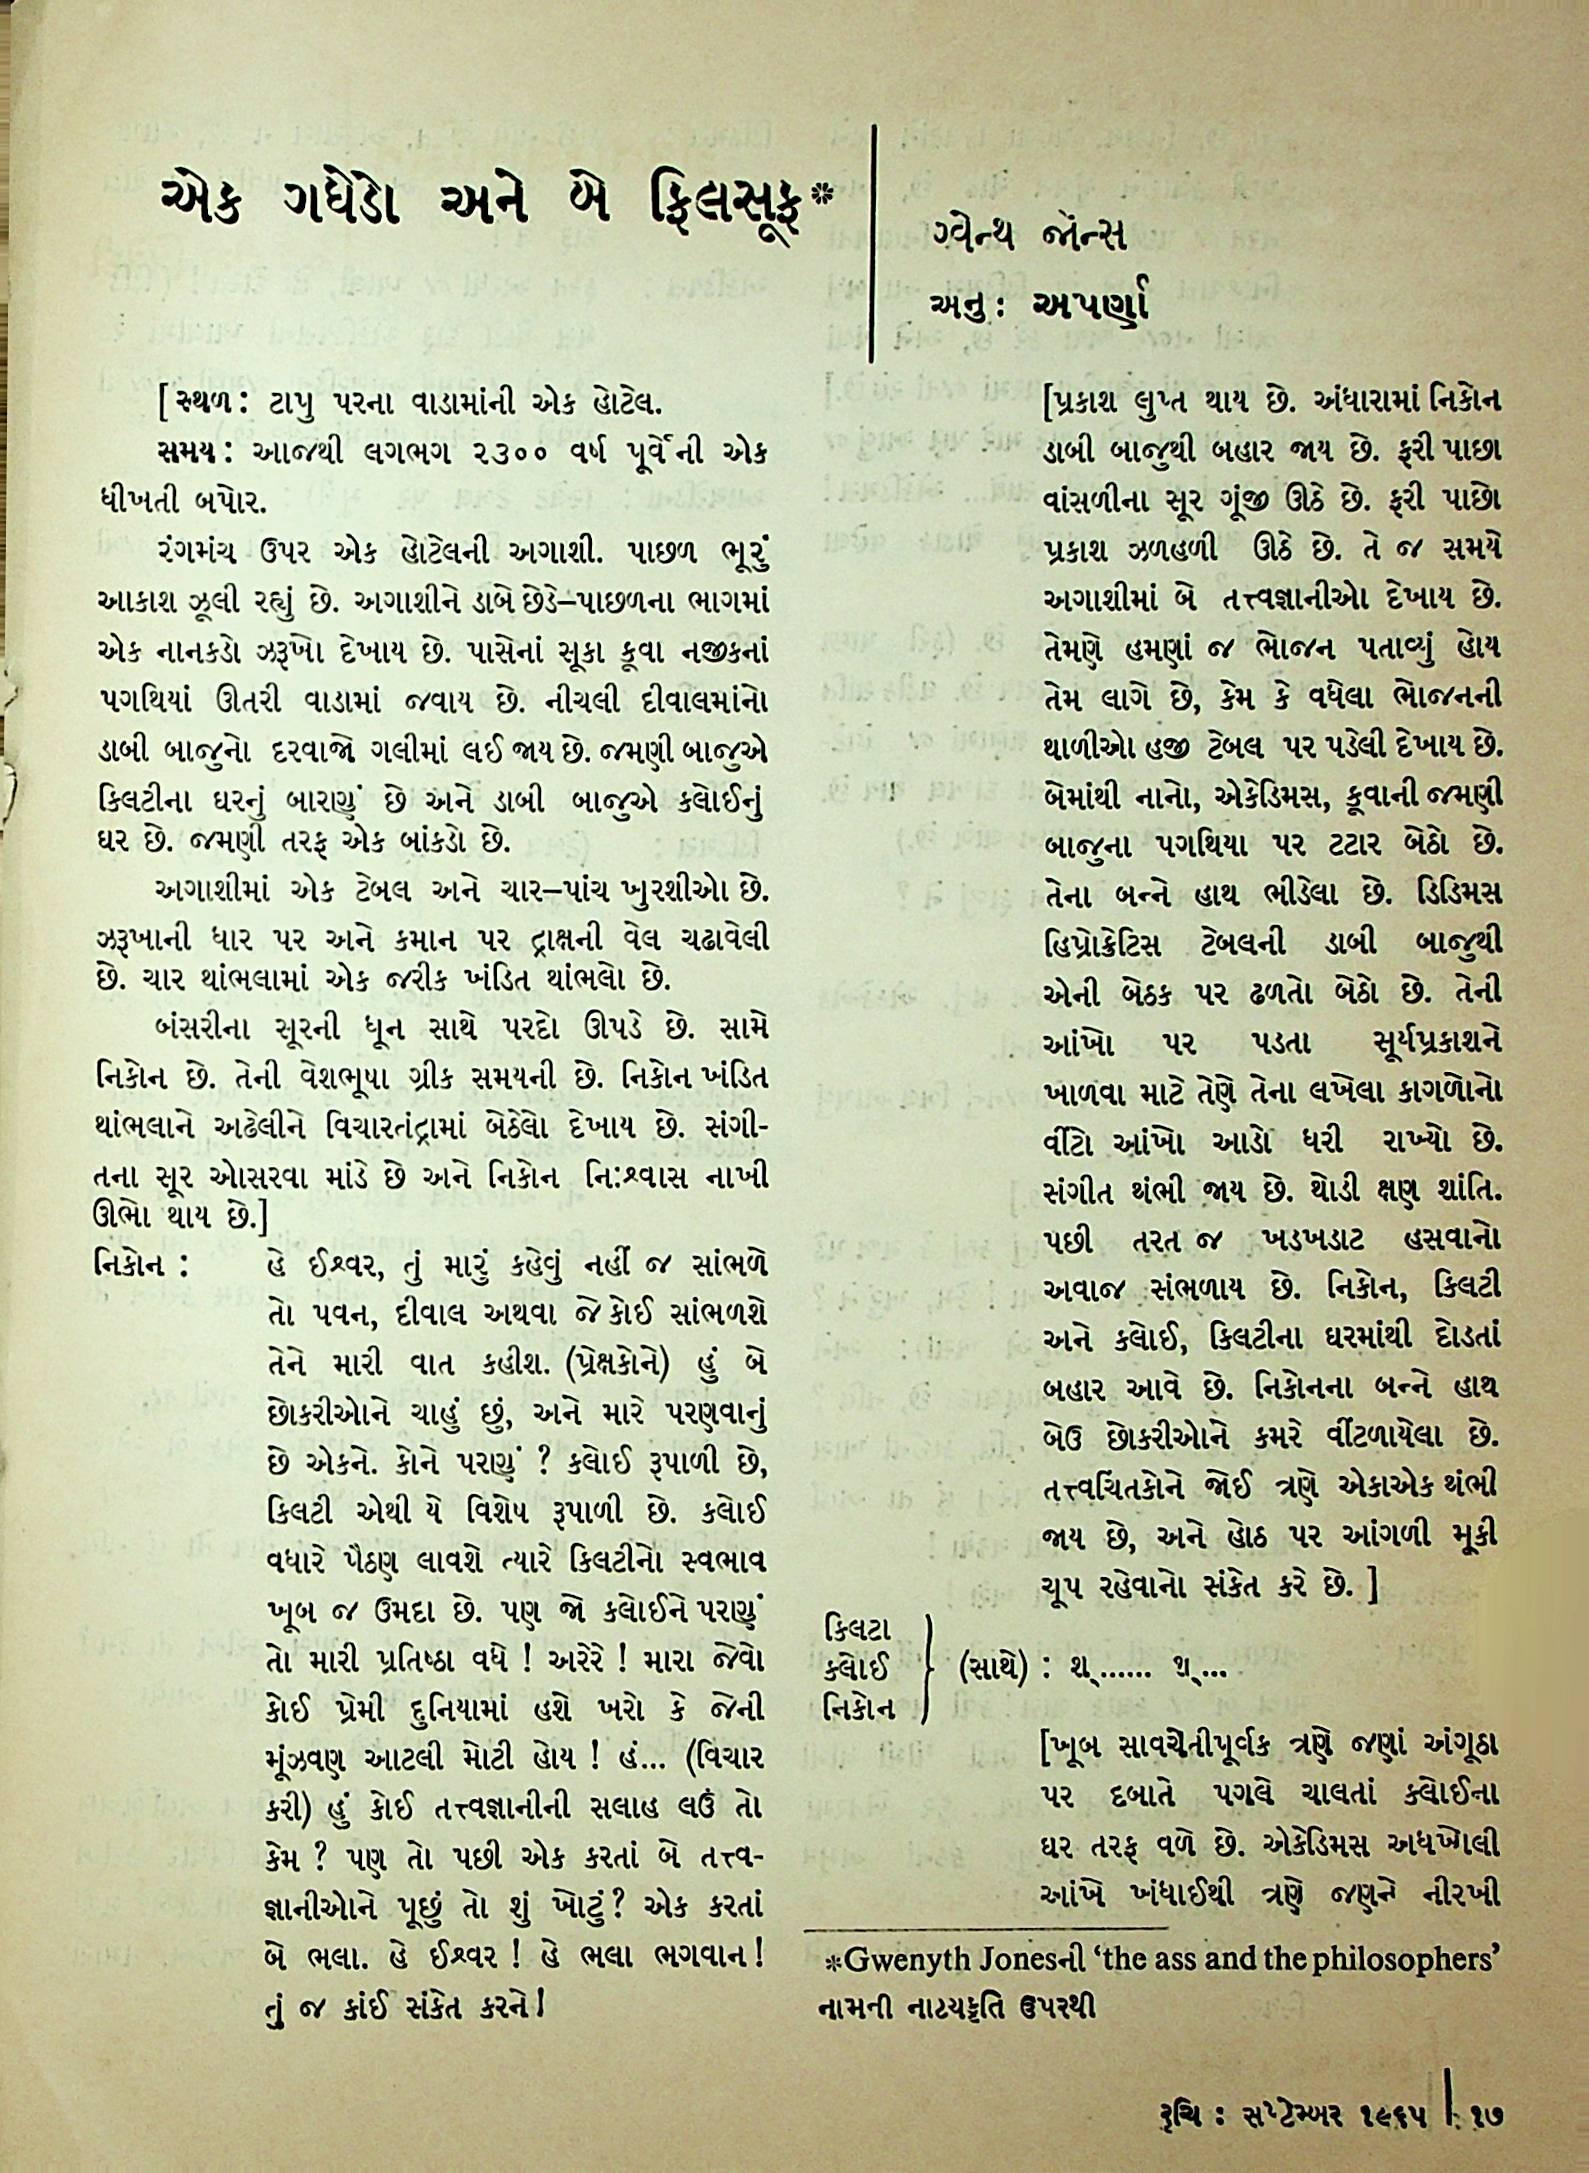 એક ગધેડો અને બે ફિલસૂફ*
ગ્વેન્થ જોન્સ
અનુ : અપર્ણા
[ સ્થળ : ટાપુ પરના વાડામાંની એક હોટેલ.
સમય : આજથી લગભગ ૨૩૦૦ વર્ષ પૂર્વેની એક
ધીખતી બપોર.
રંગમંચ ઉપર એક હોટેલની અગાશી. પાછળ ભૂરું
આકાશ ઝૂલી રહ્યું છે. અગાશીને ડાબે છેડે–પાછળના ભાગમાં
એક નાનકડો ઝરૂખો દેખાય છે. પાસેનાં સૂકા કૂવા નજીકનાં
પગથિયાં ઊતરી વાડામાં જવાય છે. નીચલી દીવાલમાંનો
ડાબી બાજુનો દરવાજો ગલીમાં લઈ જાય છે. જમણી બાજુએ
કિલટીના ઘરનું બારણું છે અને ડાબી બાજુએ કલોઈનું
ઘર છે. જમણી તરફ એક બાંકડો છે.
અગાશીમાં એક ટેબલ અને ચાર–પાંચ ખુરશીઓ છે.
ઝરૂખાની ધાર પર અને કમાન પર દ્રાક્ષની વેલ ચઢાવેલી
છે. ચાર થાંભલામાં એક જરીક ખંડિત થાંભલો છે.
બંસરીના સૂરની ધૂન સાથે પરદો ઊપડે છે. સામે
નિકોન છે. તેની વેશભૂષા ગ્રીક સમયની છે. નિકોન ખંડિત
થાંભલાને અઢેલીને વિચારતંદ્રામાં બેઠેલો દેખાય છે. સંગી-
તના સૂર ઓસરવા માંડે છે અને નિકોન નિઃશ્વાસ નાખી
ઊભો થાય છે.]
નિકોન : હે ઈશ્વર, તું મારું કહેવું નહીં જ સાંભળે
તો પવન, દીવાલ અથવા જે કોઈ સાંભળશે
તેને મારી વાત કહીશ. (પ્રેક્ષકોને) હું બે
છોકરીઓને ચાહું છું, અને મારે પરણવાનું
છે એકને. કોને પરણું ? કલોઈ રૂપાળી છે,
કિલટી એથી યે વિશેષ રૂપાળી છે. કલોઈ
વધારે પૈઠણ લાવશે ત્યારે કિલટીનો સ્વભાવ
ખૂબ જ ઉમદા છે. પણ જો કલોઈને પરણું
તો મારી પ્રતિષ્ઠા વધે ! અરેરે ! મારા જેવો
કોઈ પ્રેમી દુનિયામાં હશે ખરો કે જેની
મૂંઝવણ આટલી મોટી હોય ! હં... (વિચાર
કરી) હું કોઈ તત્ત્વજ્ઞાનીની સલાહ લઉં તો
કેમ ? પણ તો પછી એક કરતાં બે તત્ત્વ-
જ્ઞાનીઓને પૂછું તો શું ખોટું ? એક કરતાં
બે ભલા. હે ઈશ્વર ! હે ભલા ભગવાન !
તું જ કાંઈ સંકેત કરને !
[પ્રકાશ લુપ્ત થાય છે. અંધારામાં નિકોન
ડાબી બાજુથી બહાર જાય છે. ફરી પાછા
વાંસળીના સૂર ગૂંજી ઊઠે છે. ફરી પાછો
પ્રકાશ ઝળહળી ઊઠે છે. તે જ સમયે
અગાશીમાં બે તત્ત્વજ્ઞાનીઓ દેખાય છે.
તેમણે હમણાં જ ભોજન પતાવ્યું હોય
તેમ લાગે છે, કેમ કે વધેલા ભોજનની
થાળીઓ હજી ટેબલ પર પડેલી દેખાય છે.
બેમાંથી નાનો, એકેડિમસ, કૂવાની જમણી
બાજુના પગથિયા પર ટટાર બેઠો છે.
તેના બન્ને હાથ ભીડેલા છે. ડિડિમસ
હિપ્રોક્રેટિસ ટેબલની ડાબી બાજુથી
એની બેઠક પર ઢળતો બેઠો છે. તેની
આંખો પર પડતા સૂર્યપ્રકાશને
ખાળવા માટે તેણે તેના લખેલા કાગળોનો
વીંટો આંખો આડો ધરી રાખ્યો છે.
સંગીત થંભી જાય છે. થોડી ક્ષણ શાંતિ.
પછી તરત જ ખડખડાટ હસવાનો
અવાજ સંભળાય છે. નિકોન, કિલટી
અને કલોઈ, કિલટીના ઘરમાંથી દોડતાં
બહાર આવે છે. નિકોનના બન્ને હાથ
બેઉ છોકરીઓને કમરે વીંટળાયેલા છે.
તત્ત્વચિંતકોને જોઈ ત્રણે એકાએક થંભી
જાય છે, અને હોઠ પર આંગળી મૂકી
ચૂપ રહેવાનો સંકેત કરે છે. ]
કિલટા
કલોઈ (સાથે) : શ્...... શ્...
નિકોન
[ખૂબ સાવચેતીપૂર્વક ત્રણે જણાં અંગૂઠા
પર દબાતે પગલે ચાલતાં કલોઈના
ઘર તરફ વળે છે. એકેડિમસ અધખોલી
આંખે ખંધાઈથી ત્રણે જણને નીરખી
*Gwenyth Jonesની ‘the ass and the philosophers’
નામની નાટ્યકૃતિ ઉપરથી
રૂચિ : સપ્ટેમ્બર ૧૯૬૫ | ૧૭